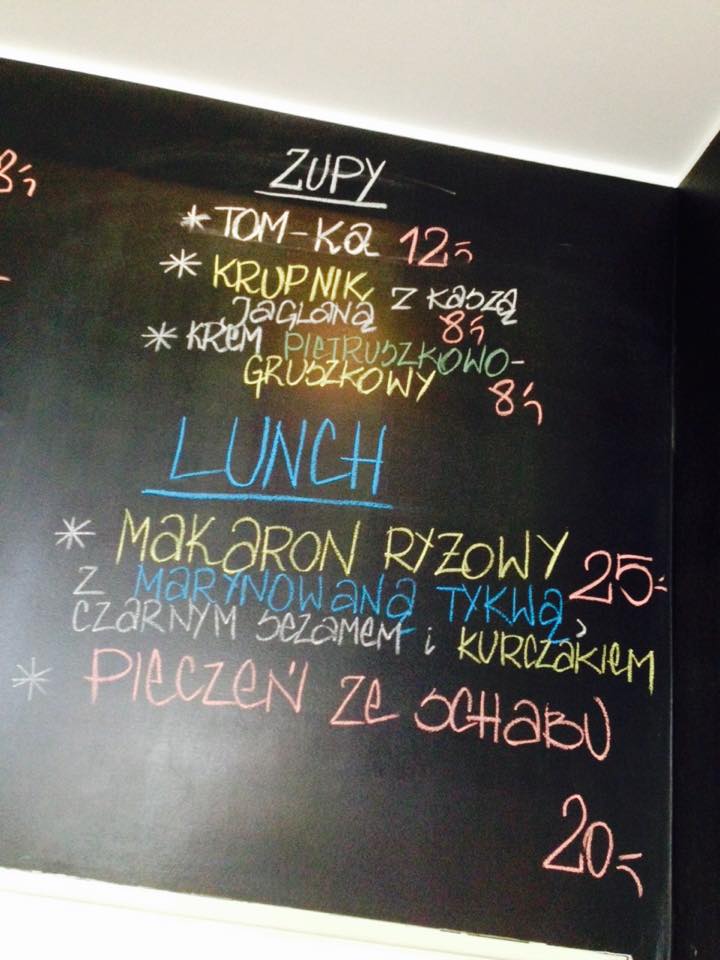 8,-
ZUPY
* TOM-KA 12,-
* KRUPNIK z KASZĄ
JAGLANĄ 8,-
* KREM PIETRUSZKOWO-
GRUSZKOWY 8,-
LUNCH
* MAKARON RYŻOWY 25,-
Z MARYNOWANĄ TYKWĄ,
CZARNYM SEZAMEM i KURCZAKIEM
* PIECZEŃ ZE SCHABU
20,-